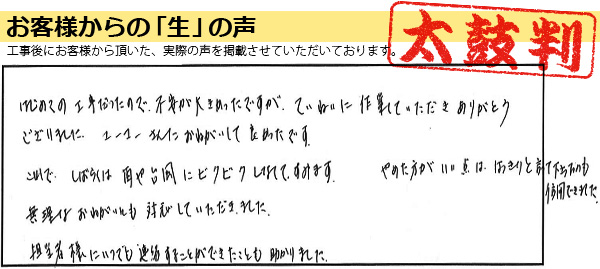 お客様からの「生」の声
工事後にお客様から頂いた、実際の声を掲載させていただいております。
太鼓判
はじめての工事だったので、不安が大きかったですが、ていねいに作業していただきありがとう
ございました。ユーユーさんにおねがいして良かったです。
これで、しばらくは雨や台風にビクビクしなくてすみます。
やめた方がいい点は、はっきりと言って下さったのも
信用できました。
無理なおねがいにも対応していただきました。
担当者様にいつでも連絡することができたことも助かりました。